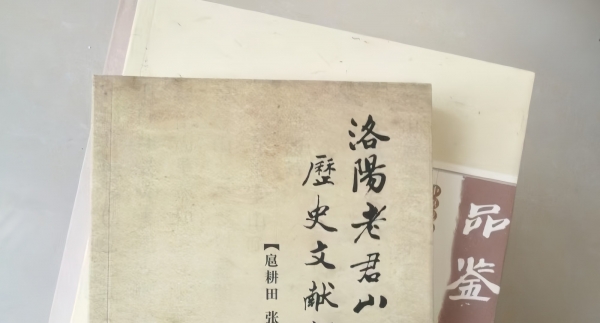 洛陽老君山
歷史文献
【扈耕田 张
品鉴